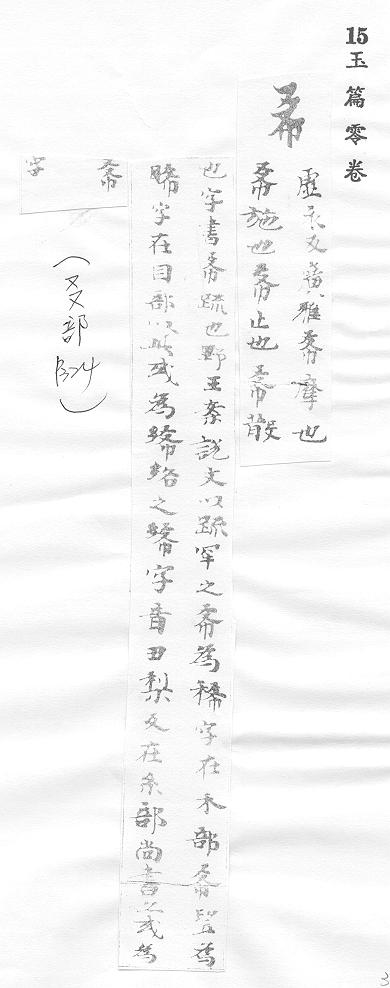 15玉篇零卷
希
虛衣反廣雅希摩也
希施也希止也希散
也字書希疏也野王案說文以疏罕之希為稀字在禾部希望為
睎字在目部以此或為絺綌之絺字音丑梨反在糸部尚書或為
希
字
(爻部 P324)